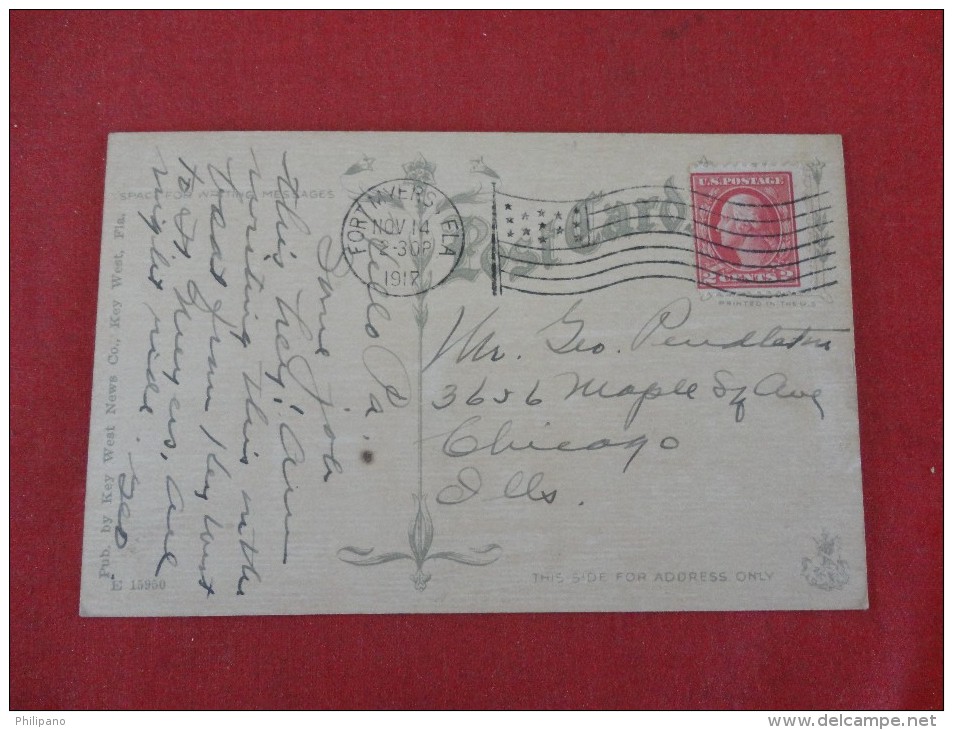 SPACE FOR WRITING MESSAGES
Post Card
FORT MYERS FLA
NOV 14
2-30P
1917
U.S. POSTAGE
2 CENTS 2
PRINTED IN THE U.S.
Hello Pa.
Some job
this hey! Am
writing this on the
boat from Key West
to Ft Myers, All
night ride.
Geo
Mr. Geo. Pendleton
3656 Maple Sq Ave
Chicago
Ills.
THIS SIDE FOR ADDRESS ONLY
Pub. by Key West News Co., Key West, Fla.
E 15950
Philipano
www.delcampe.net